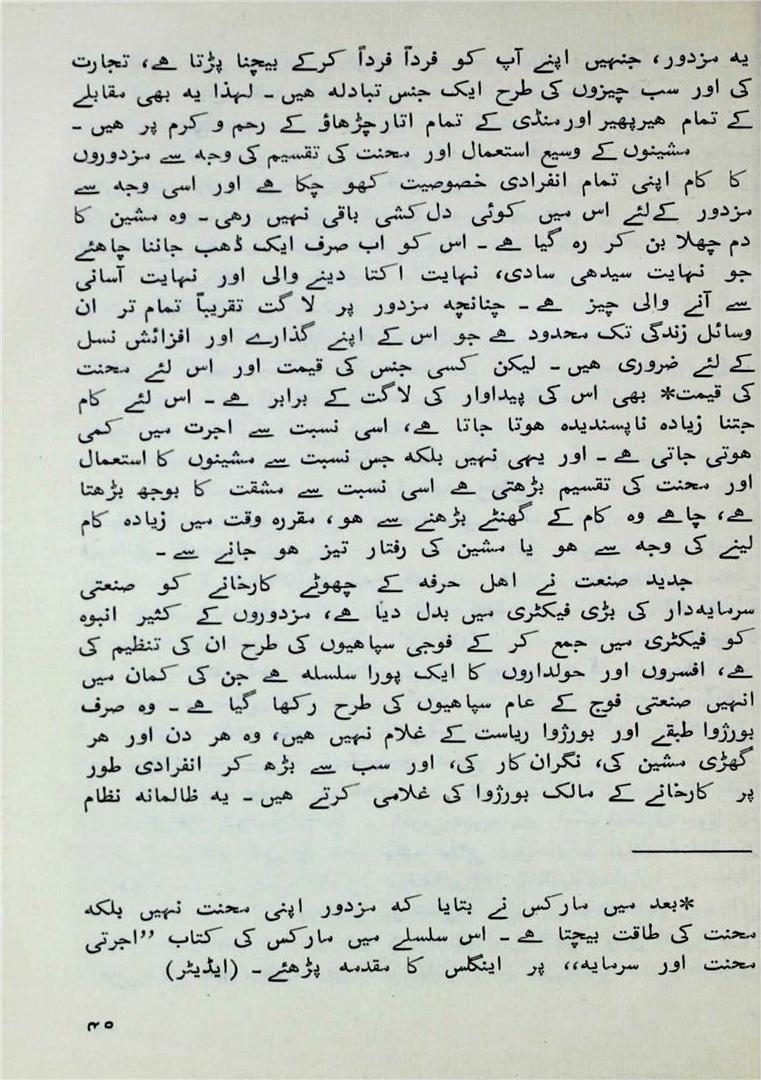 یه مزدور، جنہیں اپنے آپ کو فرداً فرداً کرکے بیچنا پڑتا ہے، تجارت
کی اور سب چیزوں کی طرح ایک جنس تبادلہ ہیں ۔ لہذا یہ بھی مقابلے
کے تمام ہیرپھیر اور منڈی کے تمام اتار چڑھاؤ کے رحم و کرم پر ہیں ۔
مشینوں کے وسیع استعمال اور محنت کی تقسیم کی وجہ سے مزدوروں
کا کام اپنی تمام انفرادی خصوصیت کھو چکا ہے اور اسی وجہ سے
مزدور کےلئے اس میں کوئی دل کشی باقی نہیں رہی ۔ وہ مشین کا
دم چھلا بن کر رہ گیا ہے ۔ اس کو اب صرف ایک ڈھب جاننا چاہئے
جو نہایت سیدھی سادی، نہایت اکتا دینے والی اور نہایت آسانی
سے آنے والی چیز ہے ۔ چنانچہ مزدور پر لاگت تقریباً تمام تر ان
وسائل زندگی تک محدود ہے جو اس کے اپنے گذارے اور افزائش نسل
کے لئے ضروری ہیں ۔ لیکن کسی جنس کی قیمت اور اس لئے محنت
کی قیمت* بھی اس کی پیداوار کی لاگت کے برابر ہے ۔ اس لئے کام
جتنا زیادہ ناپسندیدہ ہوتا جاتا ہے، اسی نسبت سے اجرت میں کمی
ہوتی جاتی ہے ۔ اور یہی نہیں بلکہ جس نسبت سے مشینوں کا استعمال
اور محنت کی تقسیم بڑھتی ہے اسی نسبت سے مشقت کا بوجھ بڑھتا
ہے، چاہے وہ کام کے گھنٹے بڑھنے سے ہو، مقررہ وقت میں زیادہ کام
لینے کی وجہ سے ہو یا مشین کی رفتار تیز ہو جانے سے ۔
جدید صنعت نے اہل حرفہ کے چھوٹے کارخانے کو صنعتی
سرمایہدار کی بڑی فیکٹری میں بدل دیا ہے، مزدوروں کے کثیر انبوہ
کو فیکٹری میں جمع کر کے فوجی سپاہیوں کی طرح ان کی تنظیم کی
ہے، افسروں اور حولداروں کا ایک پورا سلسلہ ہے جن کی کمان میں
انہیں صنعتی فوج کے عام سپاہیوں کی طرح رکھا گیا ہے ۔ وہ صرف
بورژوا طبقے اور بورژوا ریاست کے غلام نہیں ہیں، وہ ہر دن اور ہر
گھڑی مشین کی، نگران کار کی، اور سب سے بڑھ کر انفرادی طور
پر کارخانے کے مالک بورژوا کی غلامی کرتے ہیں ۔ یہ ظالمانہ نظام
*بعد میں مارکس نے بتایا کہ مزدور اپنی محنت نہیں بلکہ
محنت کی طاقت بیچتا ہے ۔ اس سلسلے میں مارکس کی کتاب ”اجرتی
محنت اور سرمایہ،، پر اینگلس کا مقدمہ پڑھئے ۔ (ایڈیٹر)
۴۵